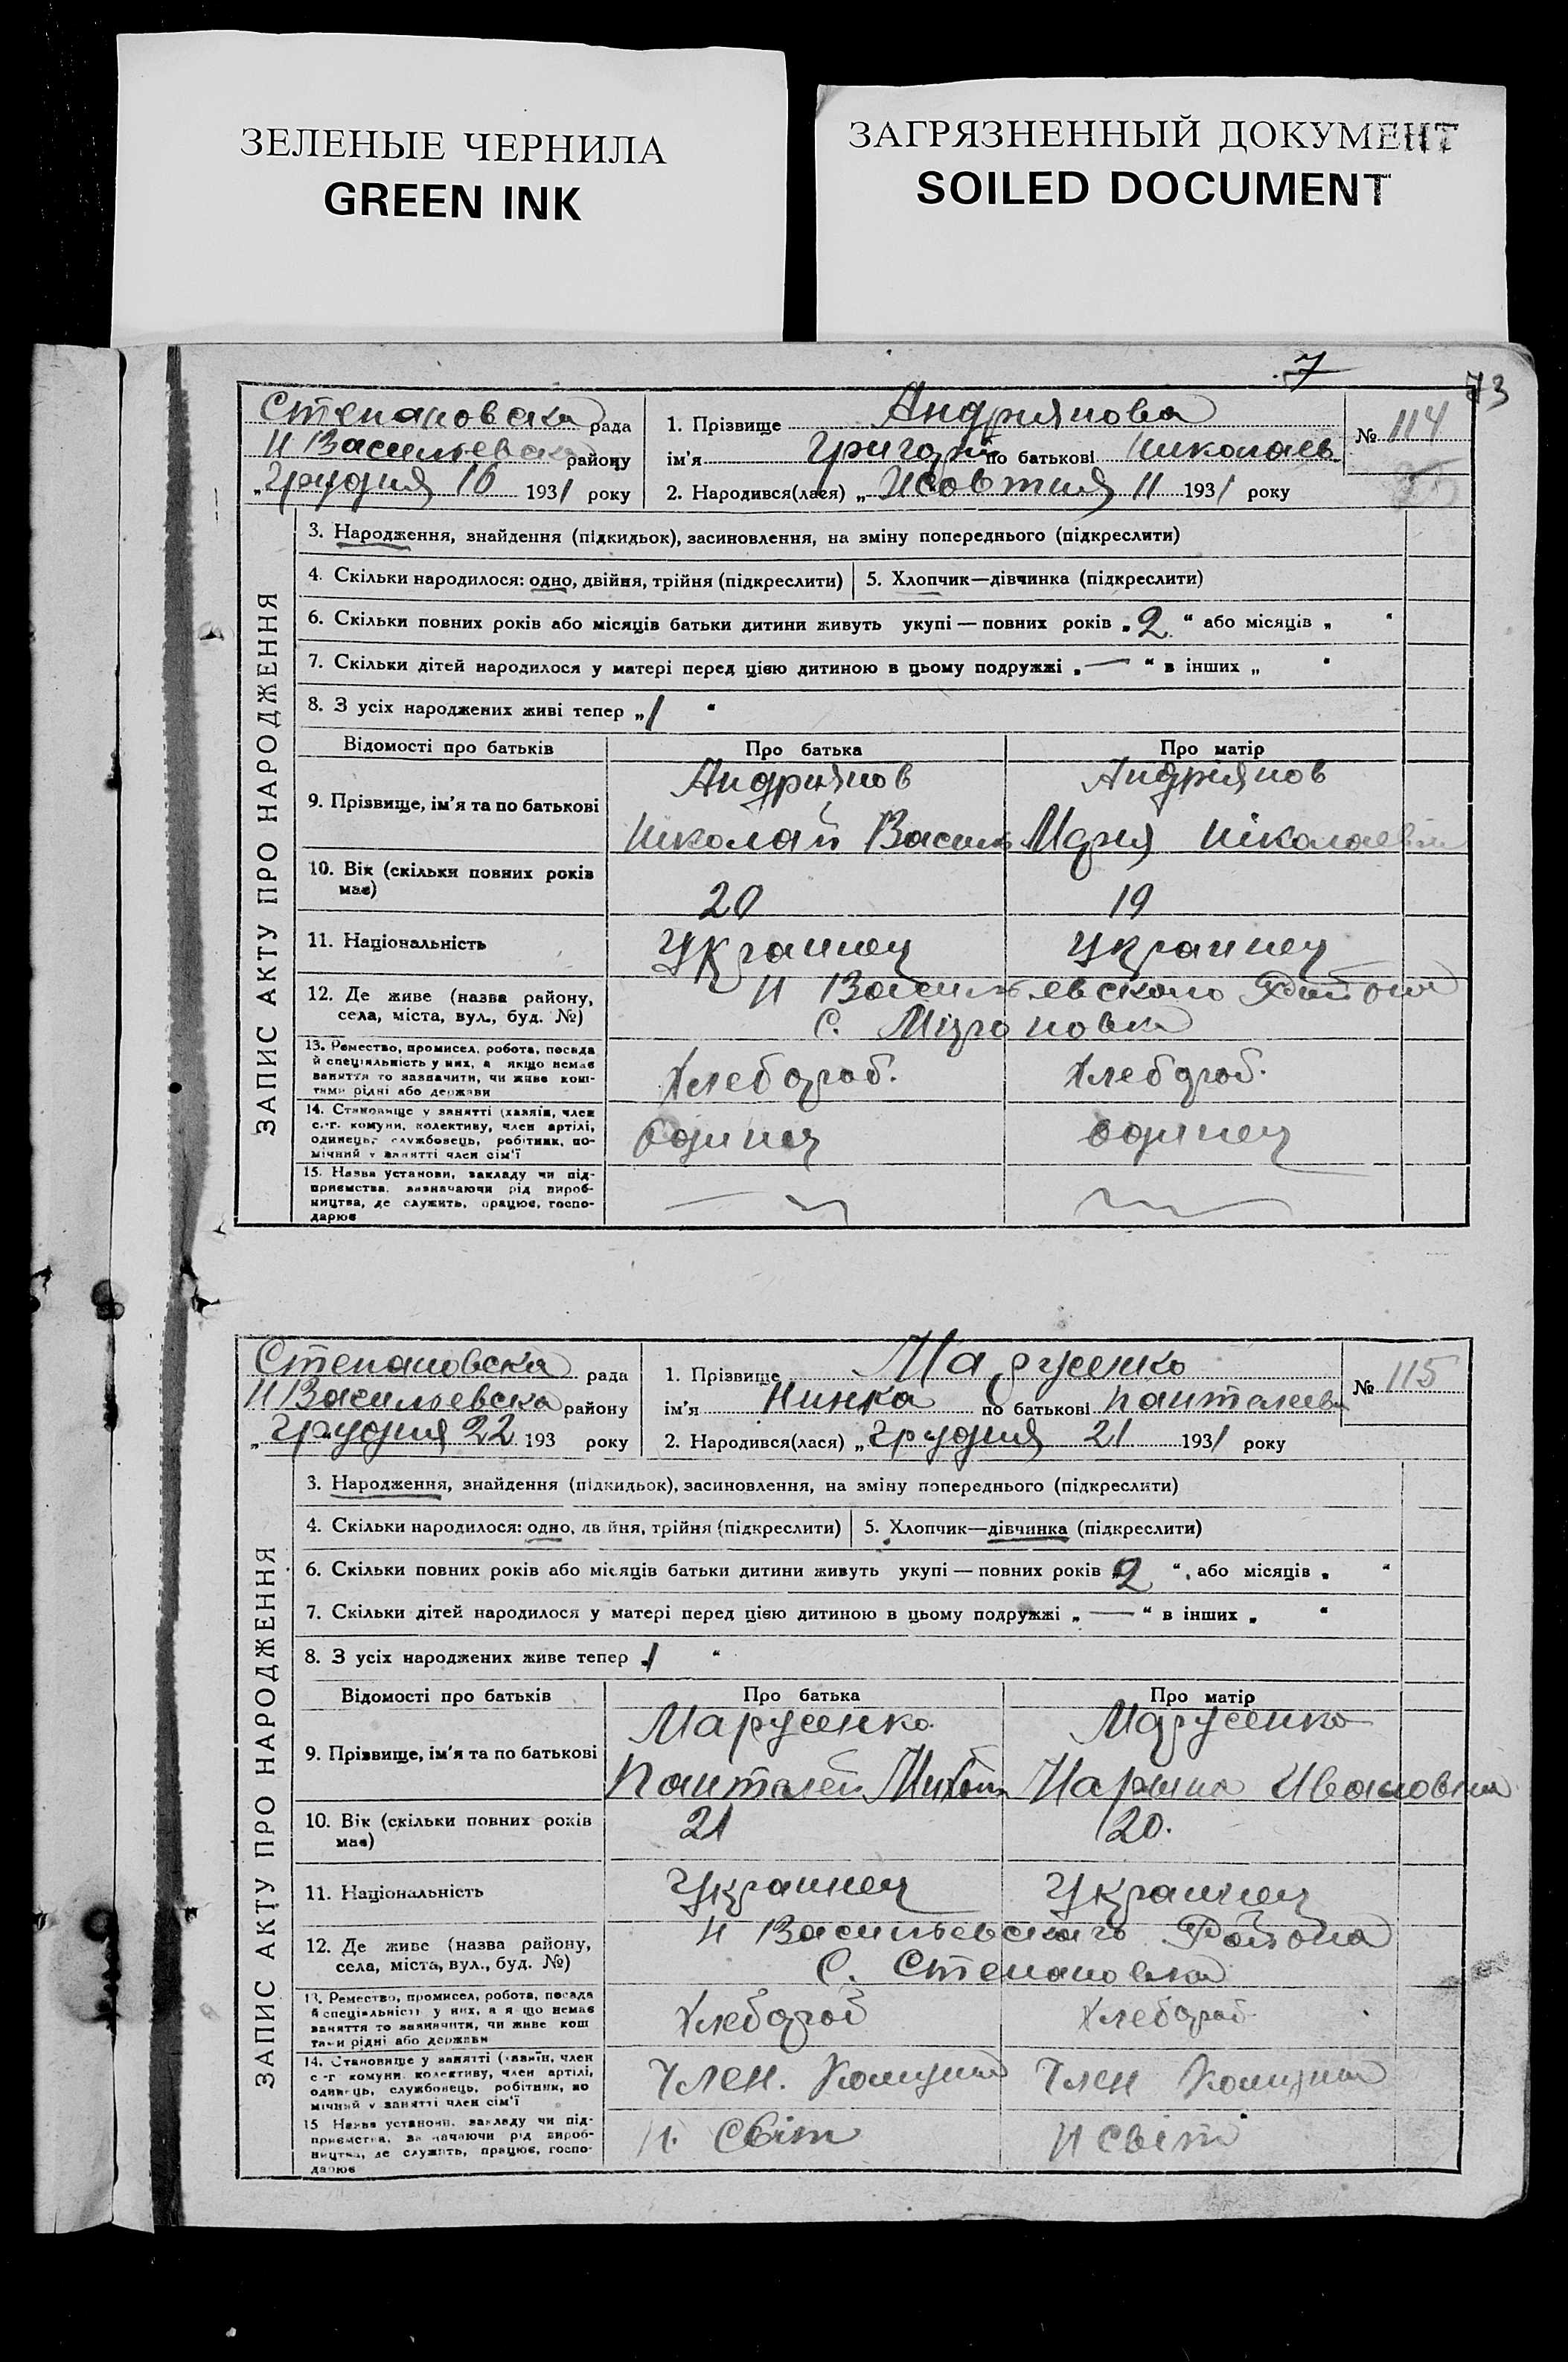 ЗЕЛЕНЫЕ ЧЕРНИЛА
GREEN INK
ЗАГРЯЗНЕННЫЙ ДОКУМЕНТ
SOILED DOCUMENT
7
73
Степановска рада
Н Васильевска району
„Грудня 16 1931 року
1. Прізвище Андриянова
ім'я Григорий по батькові Николаев
2. Народився(лася) „ Жовтня 11 1931 року
№ 114
ЗАПИС АКТУ ПРО НАРОДЖЕННЯ
3. Народження, знайдення (підкидьок), засиновлення, на зміну попереднього (підкреслити)
4. Скільки народилося: одно, двійня, трійня (підкреслити)
5. Хлопчик—дівчинка (підкреслити)
6. Скільки повних років або місяців батьки дитини живуть укупі — повних років „2“ або місяців „ “
7. Скільки дітей народилося у матері перед цією дитиною в цьому подружжі „—“ в інших „ “
8. З усіх народжених живі тепер „1 “
Відомості про батьків
Про батька
Про матір
9. Прізвище, ім'я та по батькові
Андриянов
Николай Василь
Андриянов
Мария Николаевна
10. Вік (скільки повних років має)
20
19
11. Національність
Украинец
Украинец
12. Де живе (назва району,
села, міста, вул., буд. №)
Н Васильевского Района
С.
13. Ремество, промисел, робота, посада
й спеціяльність у них, а якщо немає
заняття то зазначити, чи живе кош-
тами рідні або держави
Хлебороб.
Хлебороб.
14. Становище у занятті (хазяїн, член
с.-г. комуни, колективу, член артілі,
одинець, службовець, робітник, по-
мічний у занятті член сім'ї
Одинец
Одинец
15. Назва установи, закладу чи під-
приємства, зазначаючи рід вироб-
ництва, де служить, працює, госпо-
дарює
Степановска рада
Н Васильевска району
„Грудня 22 193 року
1. Прізвище Марусенко
ім'я Нинка по батькові Пантелеевн
2. Народився(лася) „Грудня 21 1931 року
№ 115
ЗАПИС АКТУ ПРО НАРОДЖЕННЯ
3. Народження, знайдення (підкидьок), засиновлення, на зміну попереднього (підкреслити)
4. Скільки народилося: одно, двійня, трійня (підкреслити)
5. Хлопчик—дівчинка (підкреслити)
6. Скільки повних років або місяців батьки дитини живуть укупі — повних років 2 “, або місяців „ “
7. Скільки дітей народилося у матері перед цією дитиною в цьому подружжі „—“ в інших „ “
8. З усіх народжених живе тепер „1 “
Відомості про батьків
Про батька
Про матір
9. Прізвище, ім'я та по батькові
Марусенко
Пантелей
Марусенко
Ивановна
10. Вік (скільки повних років має)
21
20.
11. Національність
Украинец
Украинец
12. Де живе (назва району,
села, міста, вул., буд. №)
Н Васильевскаго Района
С. Степановка
13. Ремество, промисел, робота, посада
й спеціяльність у них, а якщо немає
заняття то зазначити, чи живе кош
тами рідні або держави
Хлебороб
Хлебороб
14. Становище у занятті (хазяїн, член
с-г комуни, колективу, член артілі,
одинець, службовець, робітник, по
мічний у занятті член сім'ї
Член. Комуни
Член Комуни
15 Назва установи, закладу чи під-
приємства, зазначаючи рід вироб-
ництва, де служить, працює, госпо-
дарює
Н. Світ
Н Світ